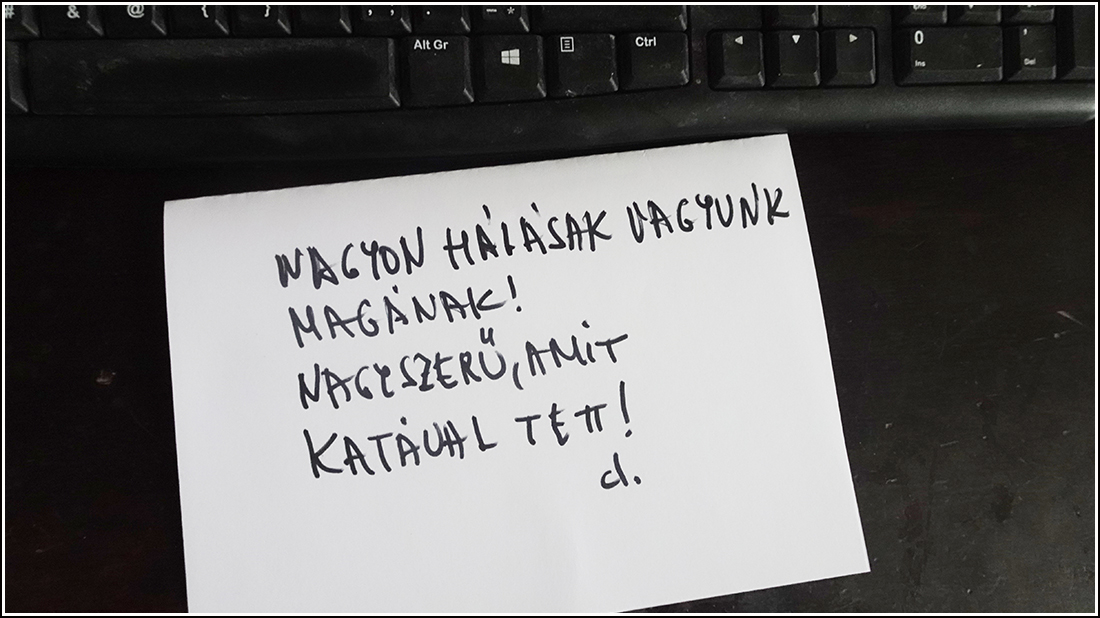 # & @ { } ; , . – *
Alt Gr Ctrl 0 ,
Ins Del
NAGYON HÁLÁSAK VAGYUNK
MAGÁNAK!
NAGYSZERŰ, AMIT
KATÁVAL TETT!
d.